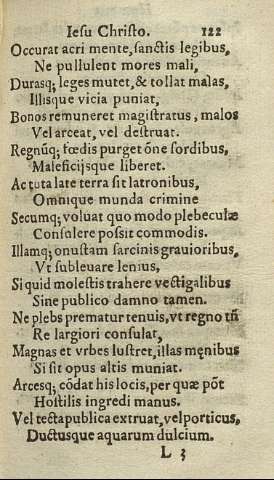 Iesu Christo. 122
Occurat acri mente, sanctis legibus,
Ne pullulent mores mali,
Durasq; leges mutet, & tollat malas,
Illisque vicia puniat,
Bonos remuneret magistratus, malos
Vel arceat, vel destruat.
Regnũq; fœdis purget õne sordibus,
Maleficijsque liberet.
Ac tuta late terra sit latronibus,
Omnique munda crimine
Secumq; voluat quo modo plebeculæ
Consulere possit commodis.
Illamq; onustam sarcinis grauioribus,
Vt subleuare lenius,
Si quid molestis trahere vectigalibus
Sine publico damno tamen.
Ne plebs prematur tenuis, vt regno tñ
Re largiori consulat,
Magnas et vrbes lustret, illas męnibus
Si sit opus altis muniat.
Arcesq; cõdat his locis, per quæ põt
Hostilis ingredi manus.
Vel tecta publica extruat, vel porticus,
Ductusque aquarum dulcium.
L 3